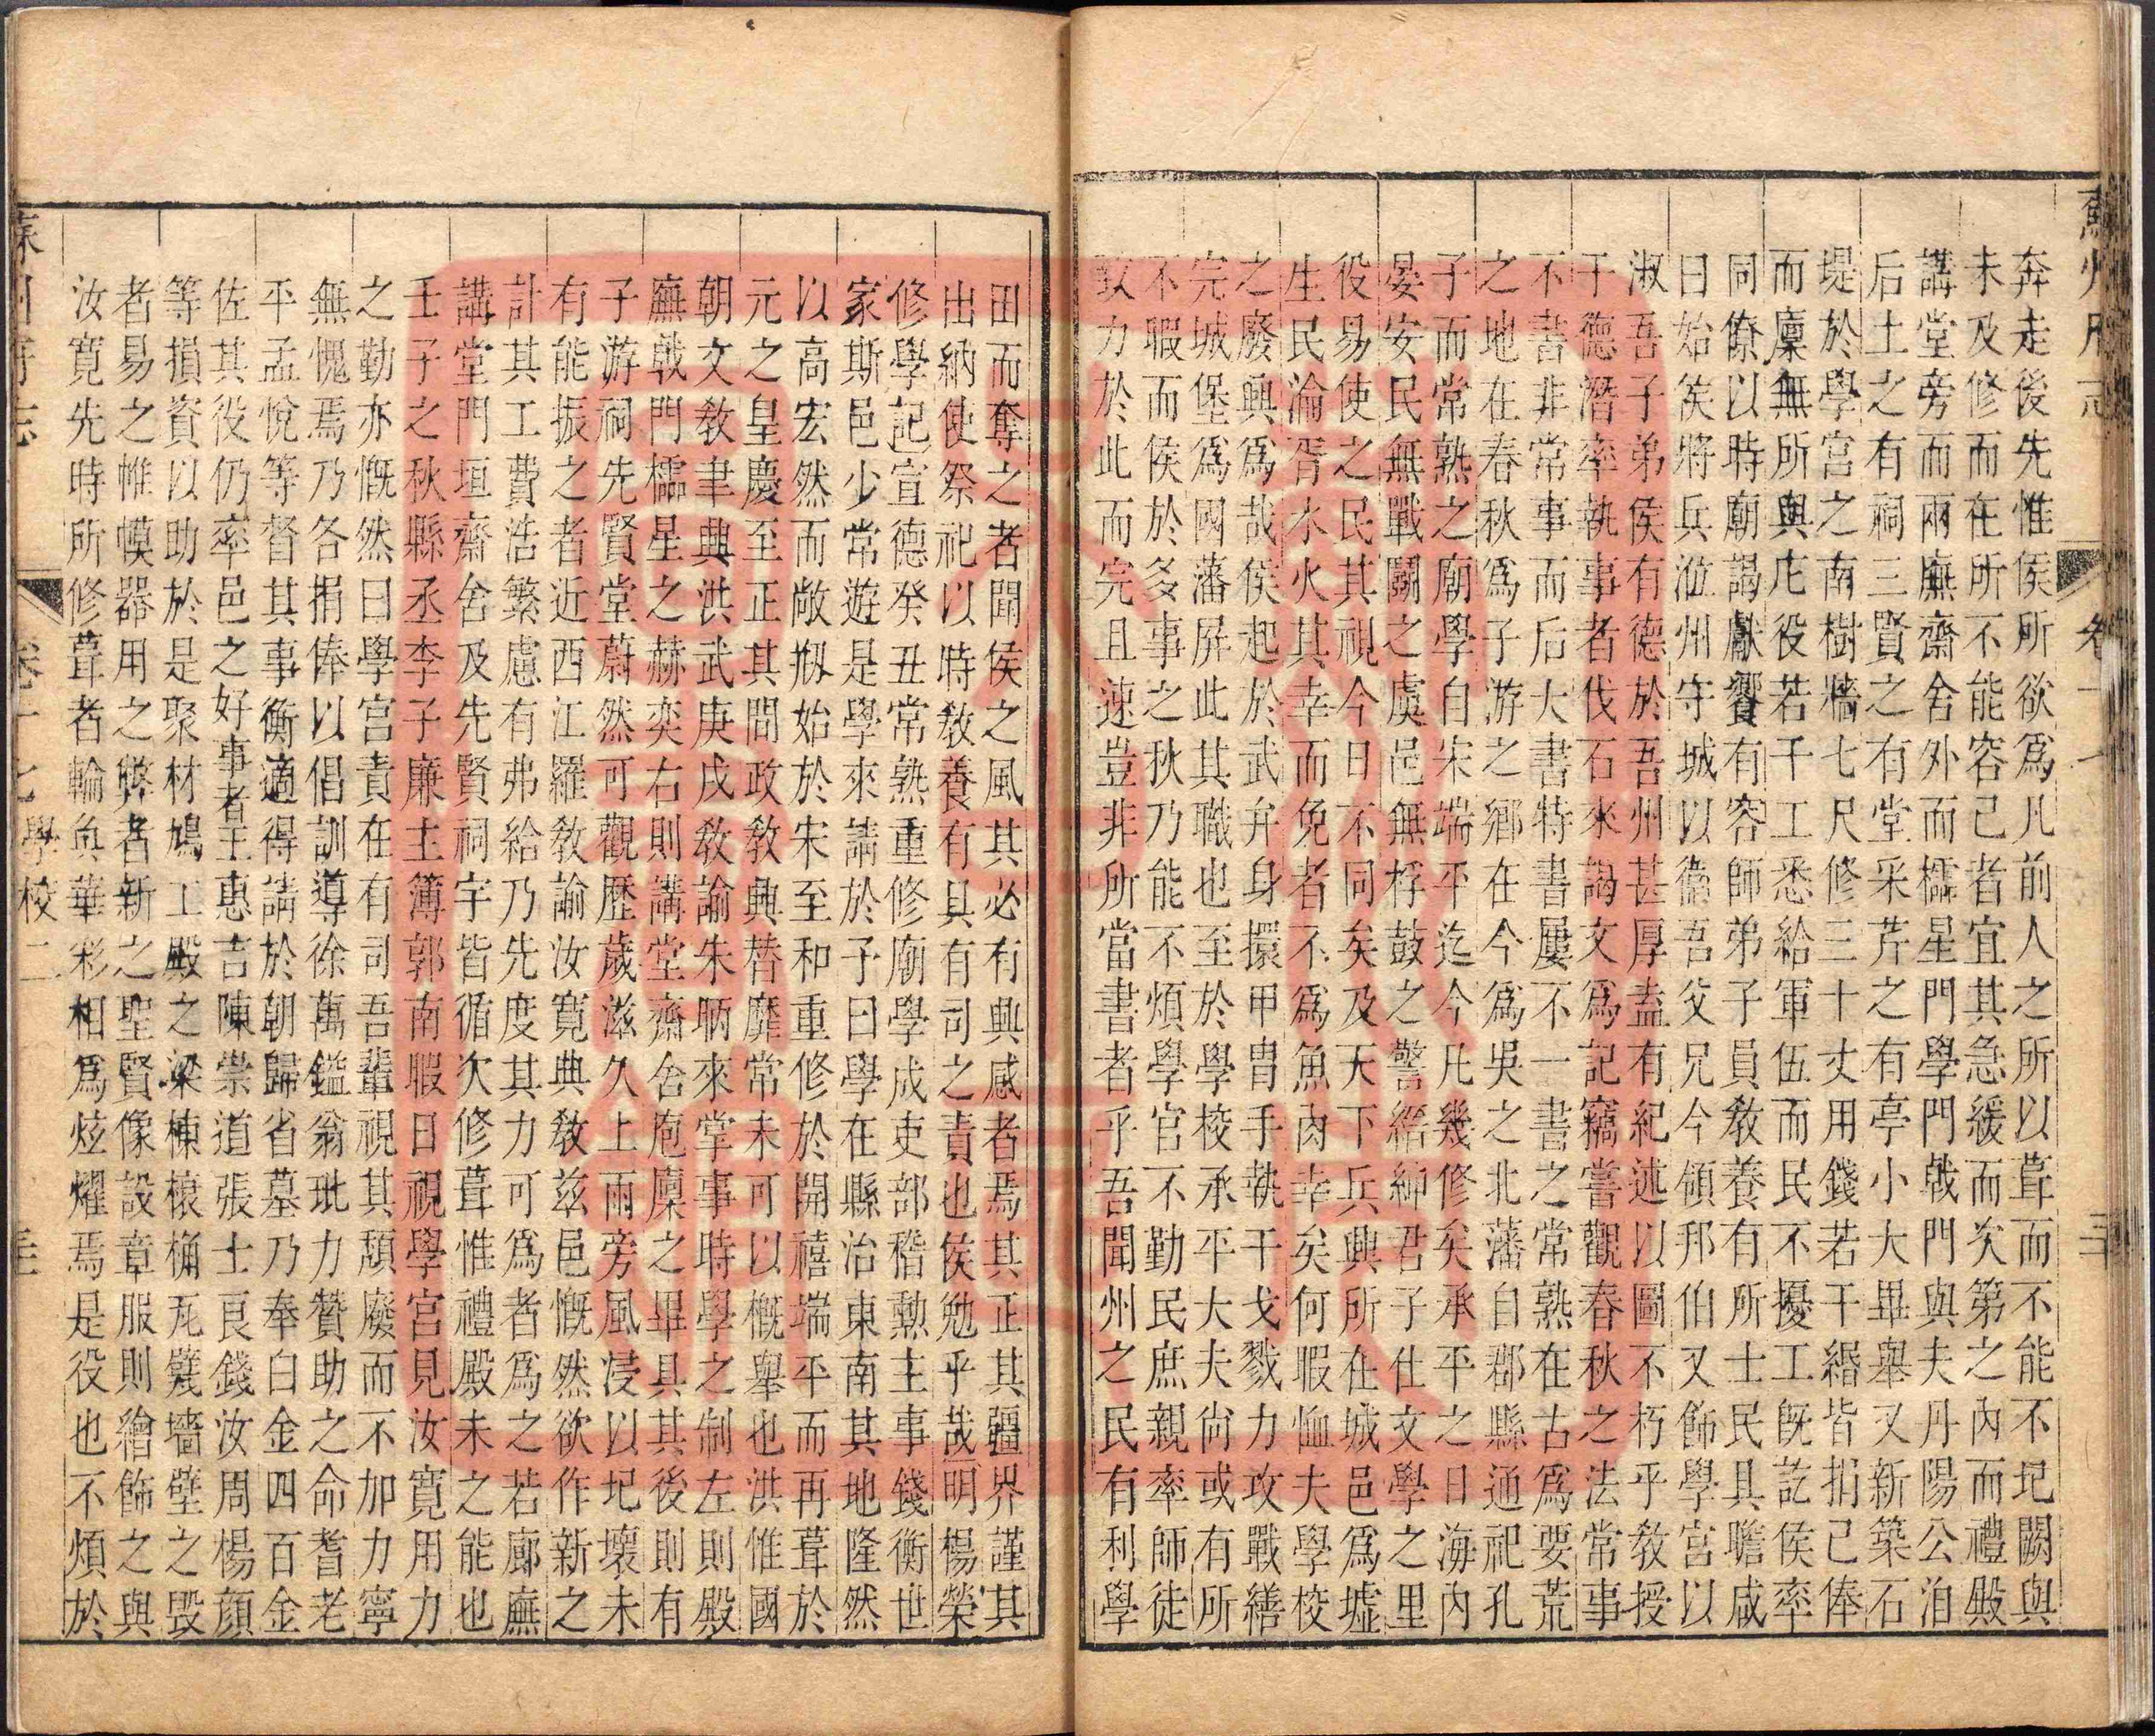 蘇州府志
卷二十七
三
奔走後先惟侯所欲爲凡前人之所以葺而不能不圮闕與
未及修而在所不能容已者宜其急緩而次第之內而禮殿
講堂旁而兩廡齋舍外而櫺星門學門戟門與夫丹陽公洎
后土之有祠三賢之有堂采芹之有亭小大畢舉又新築石
堤於學宮之南樹牆七尺修三十丈用錢若干緡皆捐己俸
而廩無所與庀役若干工悉給軍伍而民不擾工旣訖侯率
同僚以時廟謁獻饗有容師弟子員教養有所士民具瞻咸
曰始侯將兵涖州守城以衞吾父兄今領邦伯又飾學宮以
淑吾子弟侯有德於吾州甚厚盍有紀述以圖不朽乎教授
干德潛率執事者伐石來謁文爲記竊嘗觀春秋之法常事
不書非常事而后大書特書屢不一書之常熟在古爲要荒
之地在春秋爲子游之鄉在今爲吳之北藩自郡縣通祀孔
子而常熟之廟學自宋端平迄今凡幾修矣承平之日海內
晏安民無戰鬬之虞邑無桴鼓之警縉紳君子仕文學之里
役易使之民其視今日不同矣及天下兵興所在城邑爲墟
生民淪胥水火其幸而免者不爲魚肉幸矣何暇恤夫學校
之廢興爲哉侯起於武弁身擐甲冑手執干戈戮力攻戰繕
完城堡爲國藩屏此其職也至於學校承平大夫尚或有所
不暇而侯於多事之秋乃能不煩學官不勤民庶親率師徒
致力於此而完且速豈非所當書者乎吾聞州之民有利學
田而奪之者聞侯之風其必有興感者焉其正其疆界謹其
出納使祭祀以時教養有具有司之責也侯勉乎哉明楊榮
修學記宣德癸丑常熟重修廟學成吏部稽勳主事錢衡世
家斯邑少常遊是學來請於予曰學在縣治東南其地隆然
以高宏然而敞剏始於宋至和重修於開禧端平而再葺於
元之皇慶至正其間政教興替靡常未可以槪舉也洪惟國
朝文教聿興洪武庚戌教諭朱昞來掌事時學之制左則殿
廡戟門櫺星之赫奕右則講堂齋舍庖廩之畢具其後則有
子游祠先賢堂蔚然可觀歷歲滋久上雨旁風浸以圮壞未
有能振之者近西江羅教諭汝寬典教兹邑慨然欲作新之
計其工費浩繁慮有弗給乃先度其力可爲者爲之若廊廡
講堂門垣齋舍及先賢祠宇皆循次修葺惟禮殿未之能也
壬子之秋縣丞李子廉主簿郭南暇日視學宮見汝寬用力
之勤亦慨然曰學宮責在有司吾輩視其頹廢而不加力寧
無愧焉乃各捐俸以倡訓導徐萬鎰翁玭力贊助之命耆老
平孟悅等督其事衡適得請於朝歸省墓乃奉白金四百金
佐其役仍率邑之好事者王惠吉陳崇道張士良錢汝周楊顏
等損資以助於是聚材鳩工殿之梁棟榱桷瓦甓墻壁之毀
者易之帷幙器用之弊者新之聖賢像設章服則繪飾之與
汝寬先時所修葺者輪奐華彩相爲炫燿焉是役也不煩於
蘇州府志
卷二十七 學校二
三